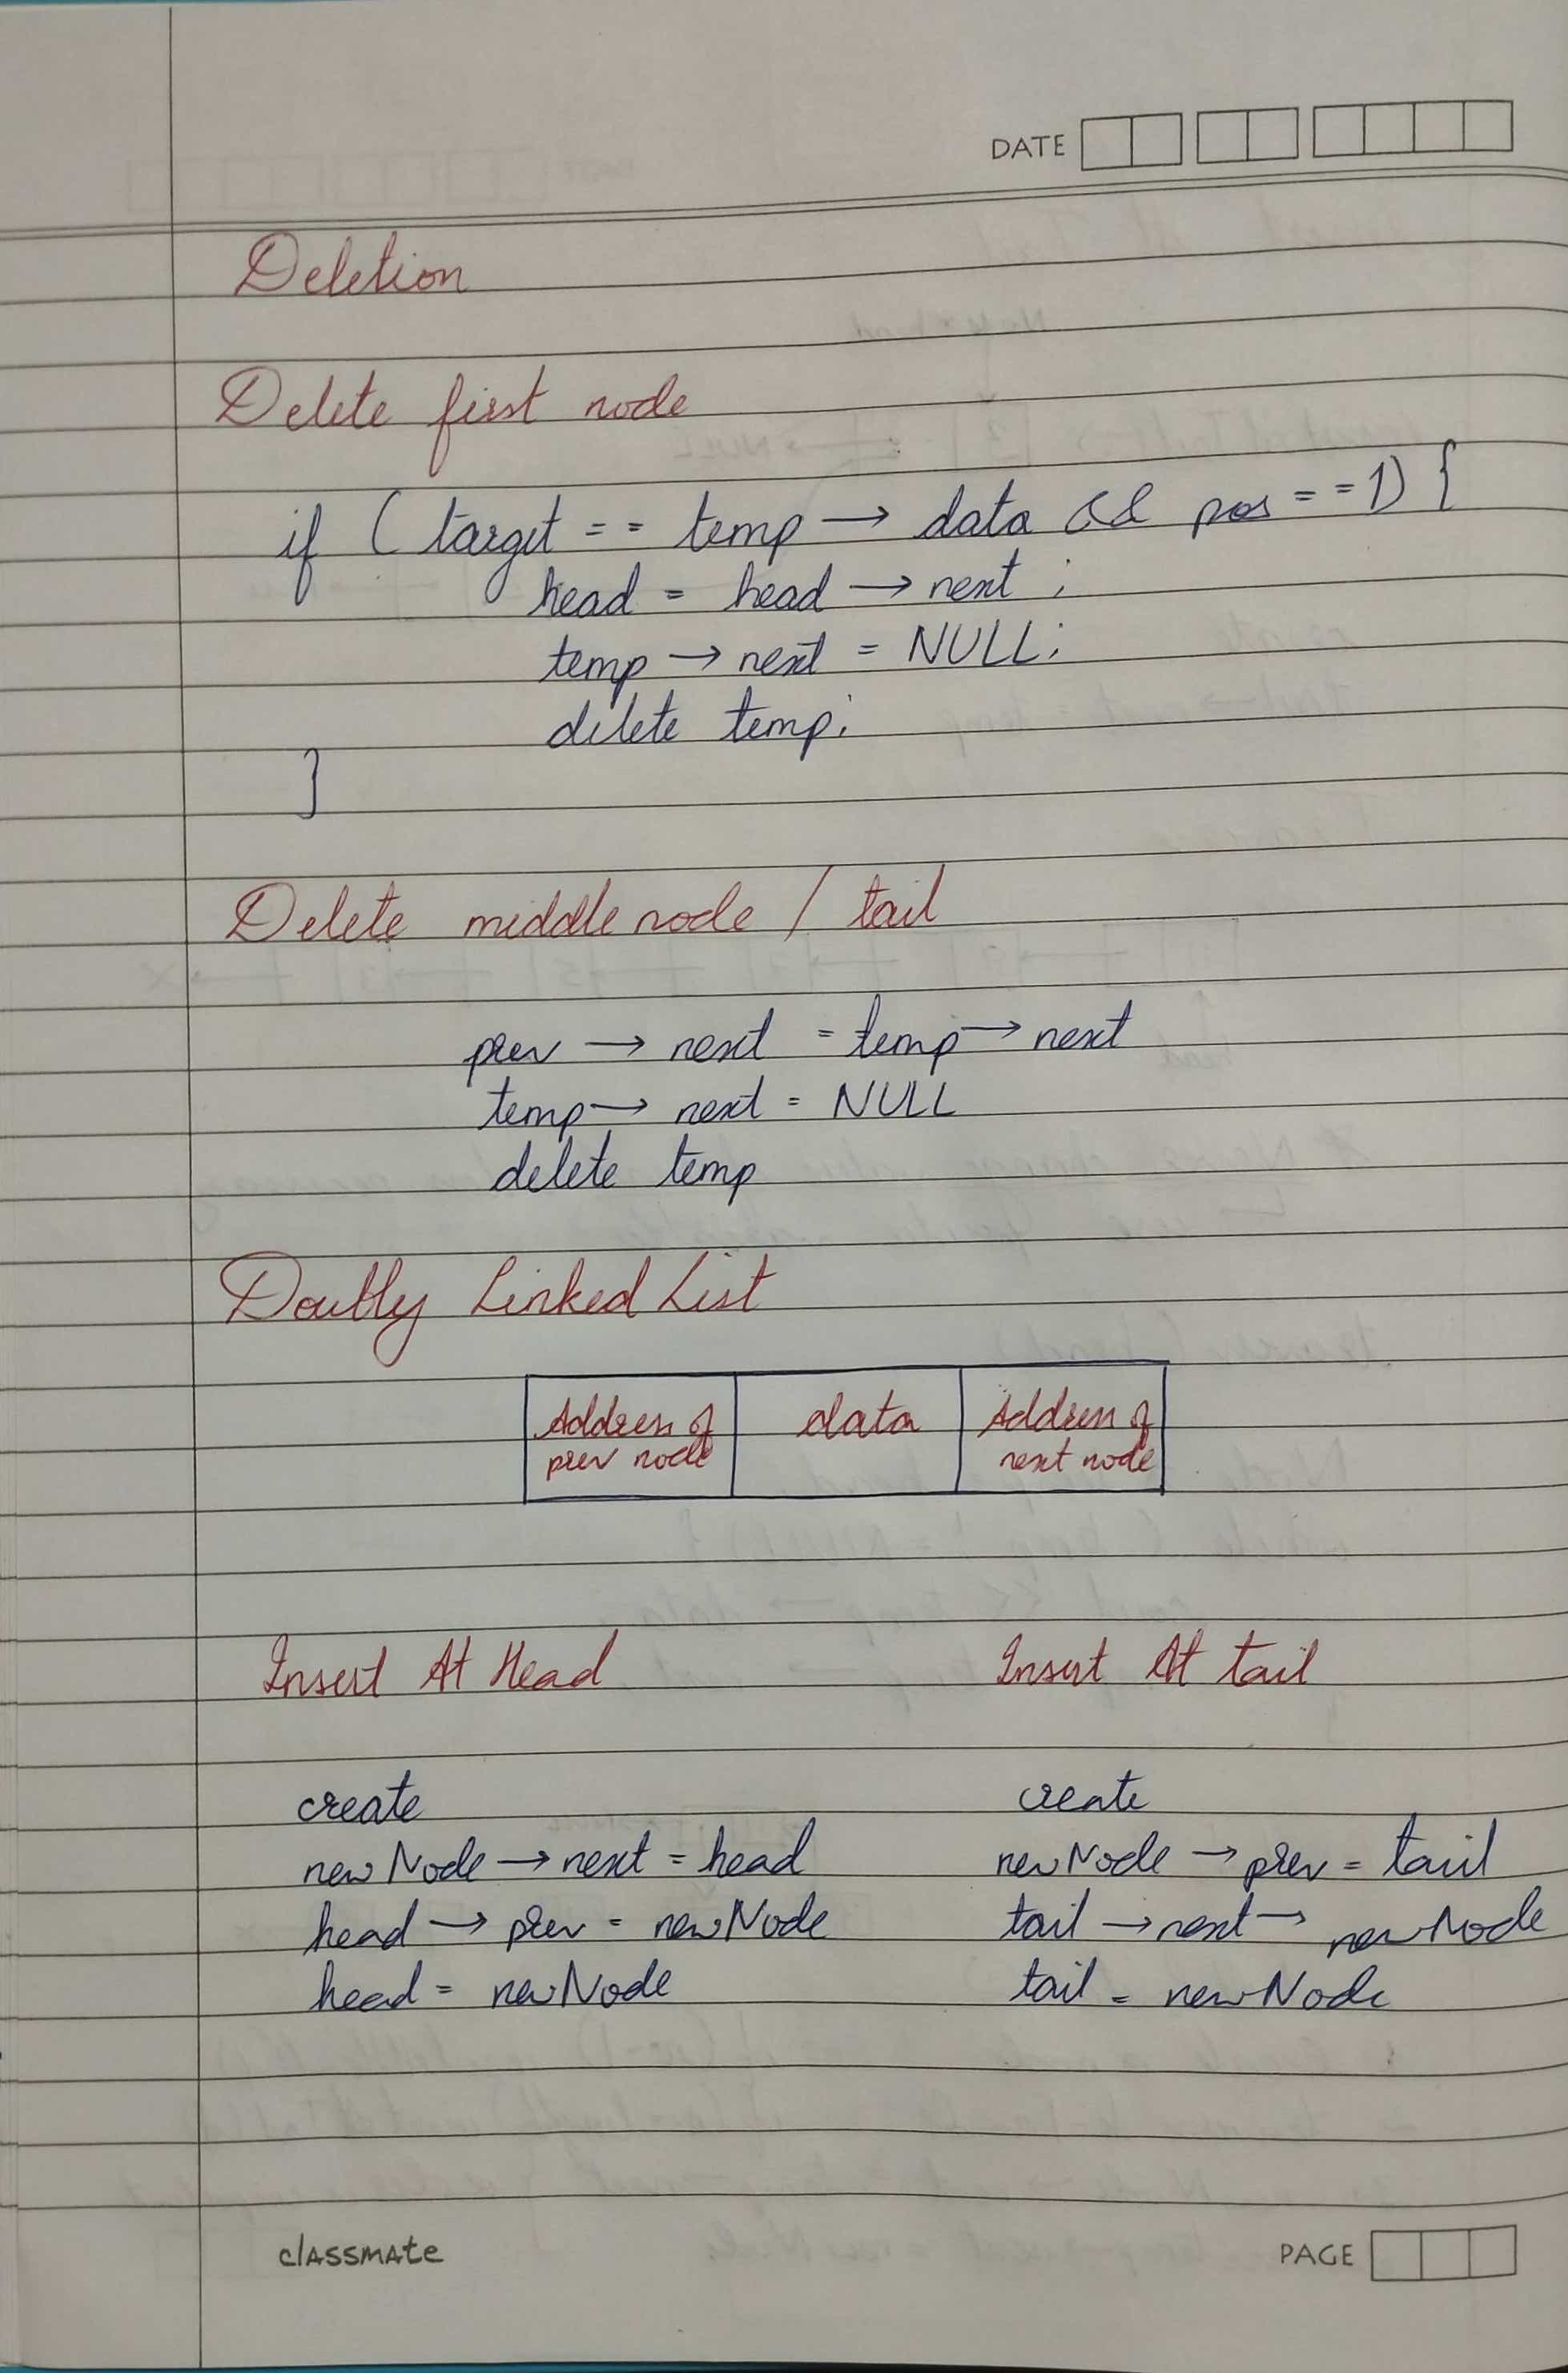 DATE
Deletion
Delete first node
if ( target == temp → data && pos == 1) {
head = head → next ;
temp → next = NULL;
delete temp;
}
Delete middle node / tail
prev → next = temp → next
temp → next = NULL
delete temp
Doubly Linked List
Address of prev node
data
Address of next node
Insert At Head
create
newNode → next = head
head → prev = newNode
head = newNode
Insert At tail
create
newNode → prev = tail
tail → next → newNode
tail = newNode
classmate
PAGE